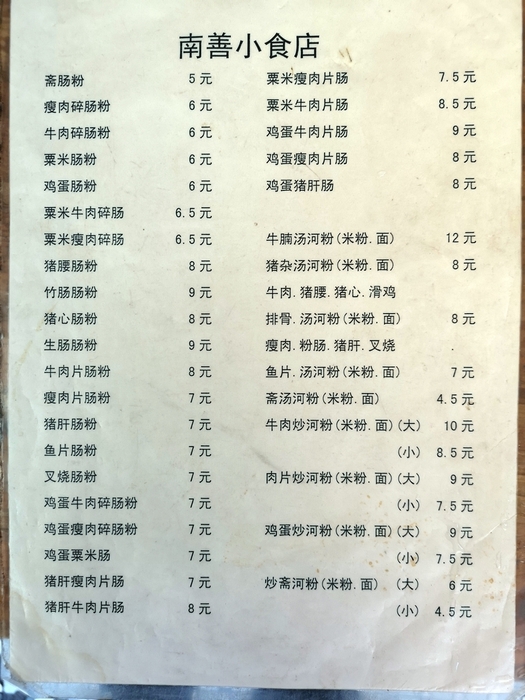 南善小食店
斋肠粉 5元
瘦肉碎肠粉 6元
牛肉碎肠粉 6元
粟米肠粉 6元
鸡蛋肠粉 6元
粟米牛肉碎肠 6.5元
粟米瘦肉碎肠 6.5元
猪腰肠粉 8元
竹肠肠粉 9元
猪心肠粉 8元
生肠肠粉 9元
牛肉片肠粉 8元
瘦肉片肠粉 7元
猪肝肠粉 7元
鱼片肠粉 7元
叉烧肠粉 7元
鸡蛋牛肉碎肠粉 7元
鸡蛋瘦肉碎肠粉 7元
鸡蛋粟米肠 7元
猪肝瘦肉片肠 7元
猪肝牛肉片肠 8元
粟米瘦肉片肠 7.5元
粟米牛肉片肠 8.5元
鸡蛋牛肉片肠 9元
鸡蛋瘦肉片肠 8元
鸡蛋猪肝肠 8元
牛腩汤河粉(米粉.面) 12元
猪杂汤河粉(米粉.面) 8元
牛肉.猪腰.猪心.滑鸡
排骨.汤河粉(米粉.面) 8元
瘦肉.粉肠.猪肝.叉烧 .
鱼片.汤河粉(米粉.面) 7元
斋汤河粉(米粉.面) 4.5元
牛肉炒河粉(米粉.面)(大) 10元
(小) 8.5元
肉片炒河粉(米粉.面)(大) 9元
(小) 7.5元
鸡蛋炒河粉(米粉.面)(大) 9元
(小) 7.5元
炒斋河粉(米粉.面) (大) 6元
(小) 4.5元